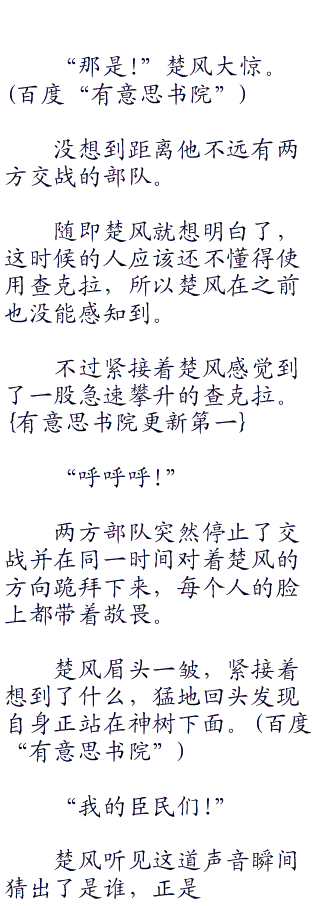 “那是!”楚风大惊。
(百度“有意思书院”)
没想到距离他不远有两
方交战的部队。
随即楚风就想明白了,
这时候的人应该还不懂得使
用查克拉, 所以楚风在之前
也没能感知到。
不过紧接着楚风感觉到
了一股急速攀升的查克拉。
{有意思书院更新第一}
“呼呼呼!”
两方部队突然停止了交
战并在同一时间对着楚风的
方向跪拜下来, 每个人的脸
上都带着敬畏。
楚风眉头一皱, 紧接着
想到了什么, 猛地回头发现
自身正站在神树下面。(百度
“有意思书院”)
“我的臣民们!”
楚风听见这道声音瞬间
猜出了是谁, 正是